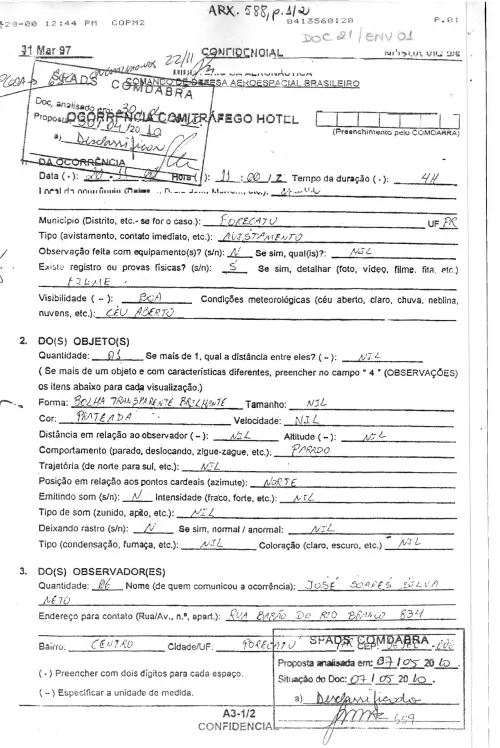 ARX. 588, p.1/2
12:44 PM COPM2 0413560120 P.01
DOC 21 / ENV 01
31 Mar 97 CONFIDENCIAL
22/11
COMANDO DE DEFESA AEROESPACIAL BRASILEIRO
COMDABRA
Doc, analisado em
OCORRÊNCIA COM TRÁFEGO HOTEL
Proposta 20/04/2010
(Preenchimento pelo COMDABRA)
a) Desclassificar
DA OCORRÊNCIA
Data (·): Hora (·): 11:00 / Z Tempo da duração (·): 4H
Município (Distrito, etc.- se for o caso.): PORECATU UF PR
Tipo (avistamento, contato imediato, etc.): AVISTAMENTO
Observação feita com equipamento(s)? (s/n): N Se sim, qual(is)?: NIL
Existe registro ou provas físicas? (s/n): S Se sim, detalhar (foto, vídeo, filme, fita, etc.)
FILME
Visibilidade ( – ): BOA Condições meteorológicas (céu aberto, claro, chuva, neblina,
nuvens, etc.): CÉU ABERTO
2. DO(S) OBJETO(S)
Quantidade: 01 Se mais de 1, qual a distância entre eles? ( – ): NIL
( Se mais de um objeto e com características diferentes, preencher no campo " 4 " (OBSERVAÇÕES)
os itens abaixo para cada visualização.)
Forma: BOLHA TRANSPARENTE BRILHANTE Tamanho: NIL
Cor: PRATEADA Velocidade: NIL
Distância em relação ao observador ( – ): NIL Altitude ( – ): NIL
Comportamento (parado, deslocando, zigue-zague, etc.): PARADO
Trajetória (de norte para sul, etc.): NIL
Posição em relação aos pontos cardeais (azimute): NORTE
Emitindo som (s/n): N Intensidade (fraco, forte, etc.): NIL
Tipo de som (zunido, apito, etc.): NIL
Deixando rastro (s/n): N Se sim, normal / anormal: NIL
Tipo (condensação, fumaça, etc.): NIL Coloração (claro, escuro, etc.) NIL
3. DO(S) OBSERVADOR(ES)
Quantidade: 06 Nome (de quem comunicou a ocorrência): JOSÉ SOARES SILVA
NETO
Endereço para contato (Rua/Av., n.º, apart.): RUA BARÃO DO RIO BRANCO 834
Bairro: CENTRO Cidade/UF: PORECATU CEP:
SPADS COMDABRA
( · ) Preencher com dois dígitos para cada espaço.
Proposta analisada em: 07 / 05 20 10 .
( – ) Especificar a unidade de medida.
Situação do Doc: 07 / 05 20 10 .
a) Desclassificado
A3-1/2
CONFIDENCIAL